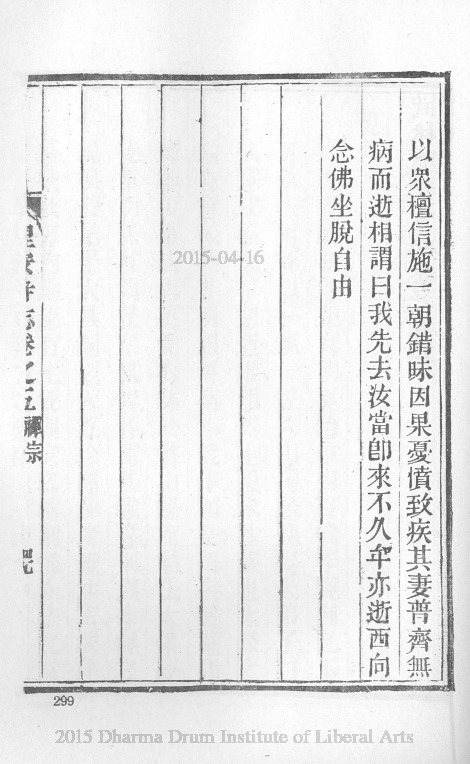 以眾檀信施一朝錯昧因果憂憤致疾其妻普齊無
病而逝相謂曰我先去汝當卽來不久牟亦逝西向
念佛坐脫自由
聖安寺志卷之五禪宗
2015-04-16
299
2015 Dharma Drum Institute of Liberal Arts